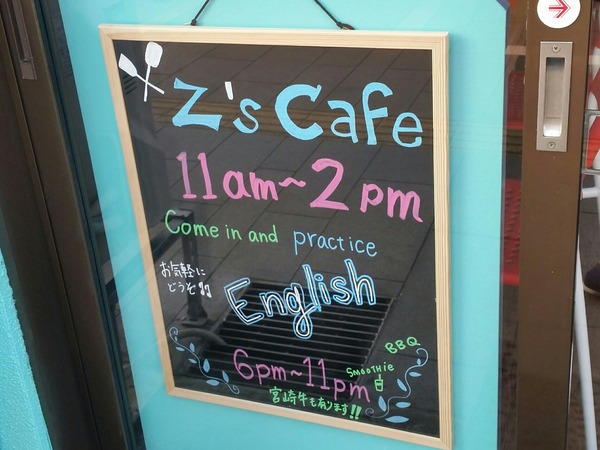 Z's Cafe
11am~2pm
Come in and practice
お気軽に
どうぞ♫
English
BBQ
SMOOTHie
6pm~11pm
宮崎牛も有ります!!